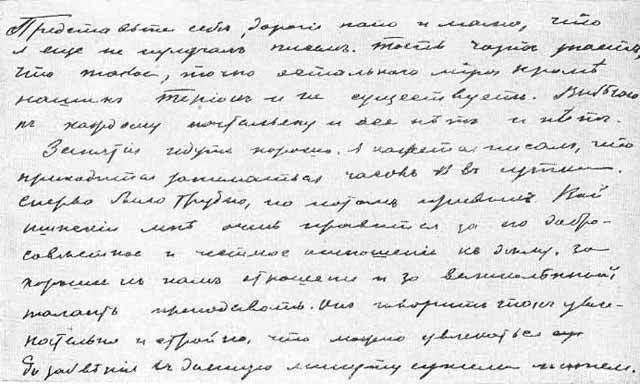 Представьте себе, дорогие папа и мама, что
я еще не получалъ писемъ. Просто чортъ знаетъ,
что такое, точно остального мiра кромѣ
нашихъ Терiокъ и не существуетъ. Выбѣгаю
къ каждому почтальону и все нѣтъ и нѣтъ.
Занятiя идутъ хорошо. Я кажется писалъ, что
приходится заниматься часовъ въ сутки.
Сперва было трудно, но потомъ привыкъ.
мнѣ очень нравится за его добро-
совѣстное и честное отношенiе къ дѣлу, за
хорошiе къ намъ отношенiя и за великолѣпный
талантъ преподавать. Онъ говоритъ такъ увле-
кательно и стройно, что можно увлекаться
до забвенiя въ данную минуту